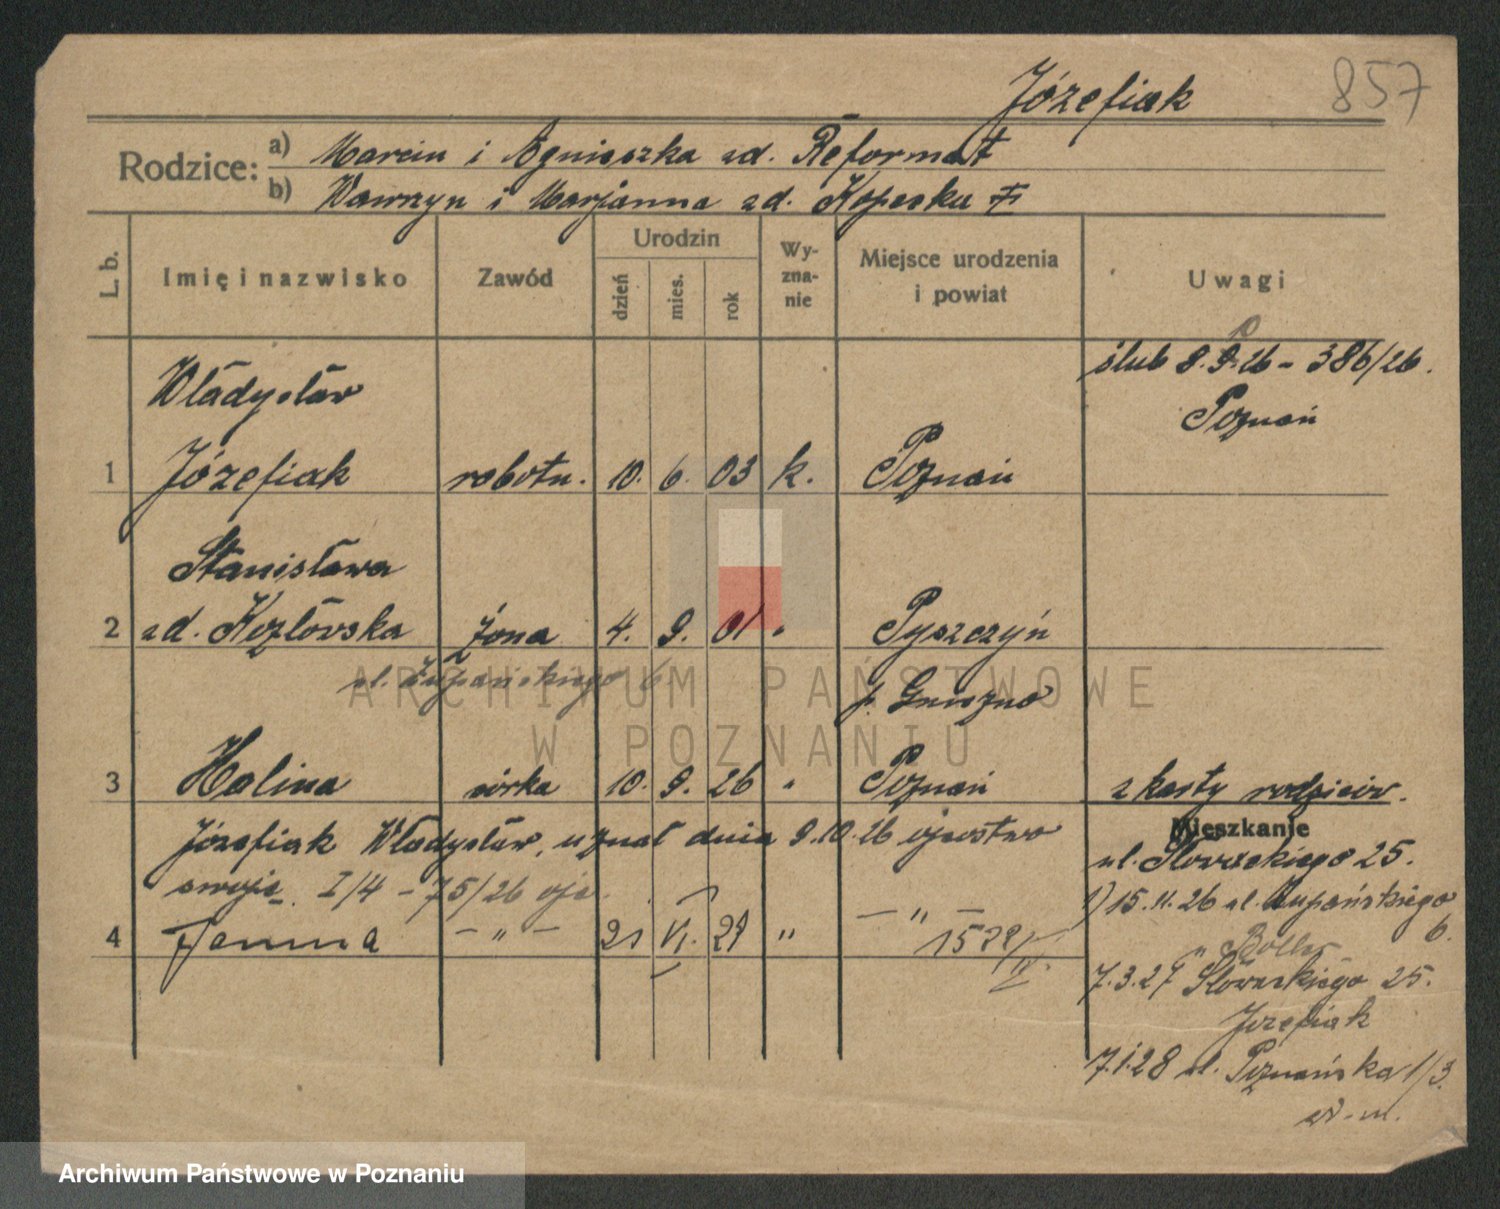 Józefiak 857
Rodzice: a) Marcin i Agnieszka zd. Reformat
b) Wawrzyn i Marjanna zd. Kopeska
L. b. Imię i nazwisko Zawód Urodzin dzień mies. rok Wyznanie Miejsce urodzenia i powiat Uwagi
ślub 8.9.26 - 386/26.
Poznań
Władysław
1 Józefiak robotn. 10. 6. 03 k. Poznań
Stanisława
2 zd. Kozłowska żona 4. 9. 01 " Pyszczyń
ul. Żupańskiego 6 p. Gniezno
3 Halina córka 10. 9. 26 " Poznań z karty rodziców.
Józefiak Władysław, uznał dnia 9.10.26 ojcostwo
swoje I/4 - 75/26
4 Janina - " - 21 VI. 29 " - " -
Mieszkanie
ul. Słowackiego 25.
1) 15.11.26 ul. Żupańskiego 6.
7.3.27 Słowackiego 25.
Józefiak
7.1.28 ul. Poznańska 1/3.
ARCHIWUM PAŃSTWOWE
W POZNANIU
Archiwum Państwowe w Poznaniu